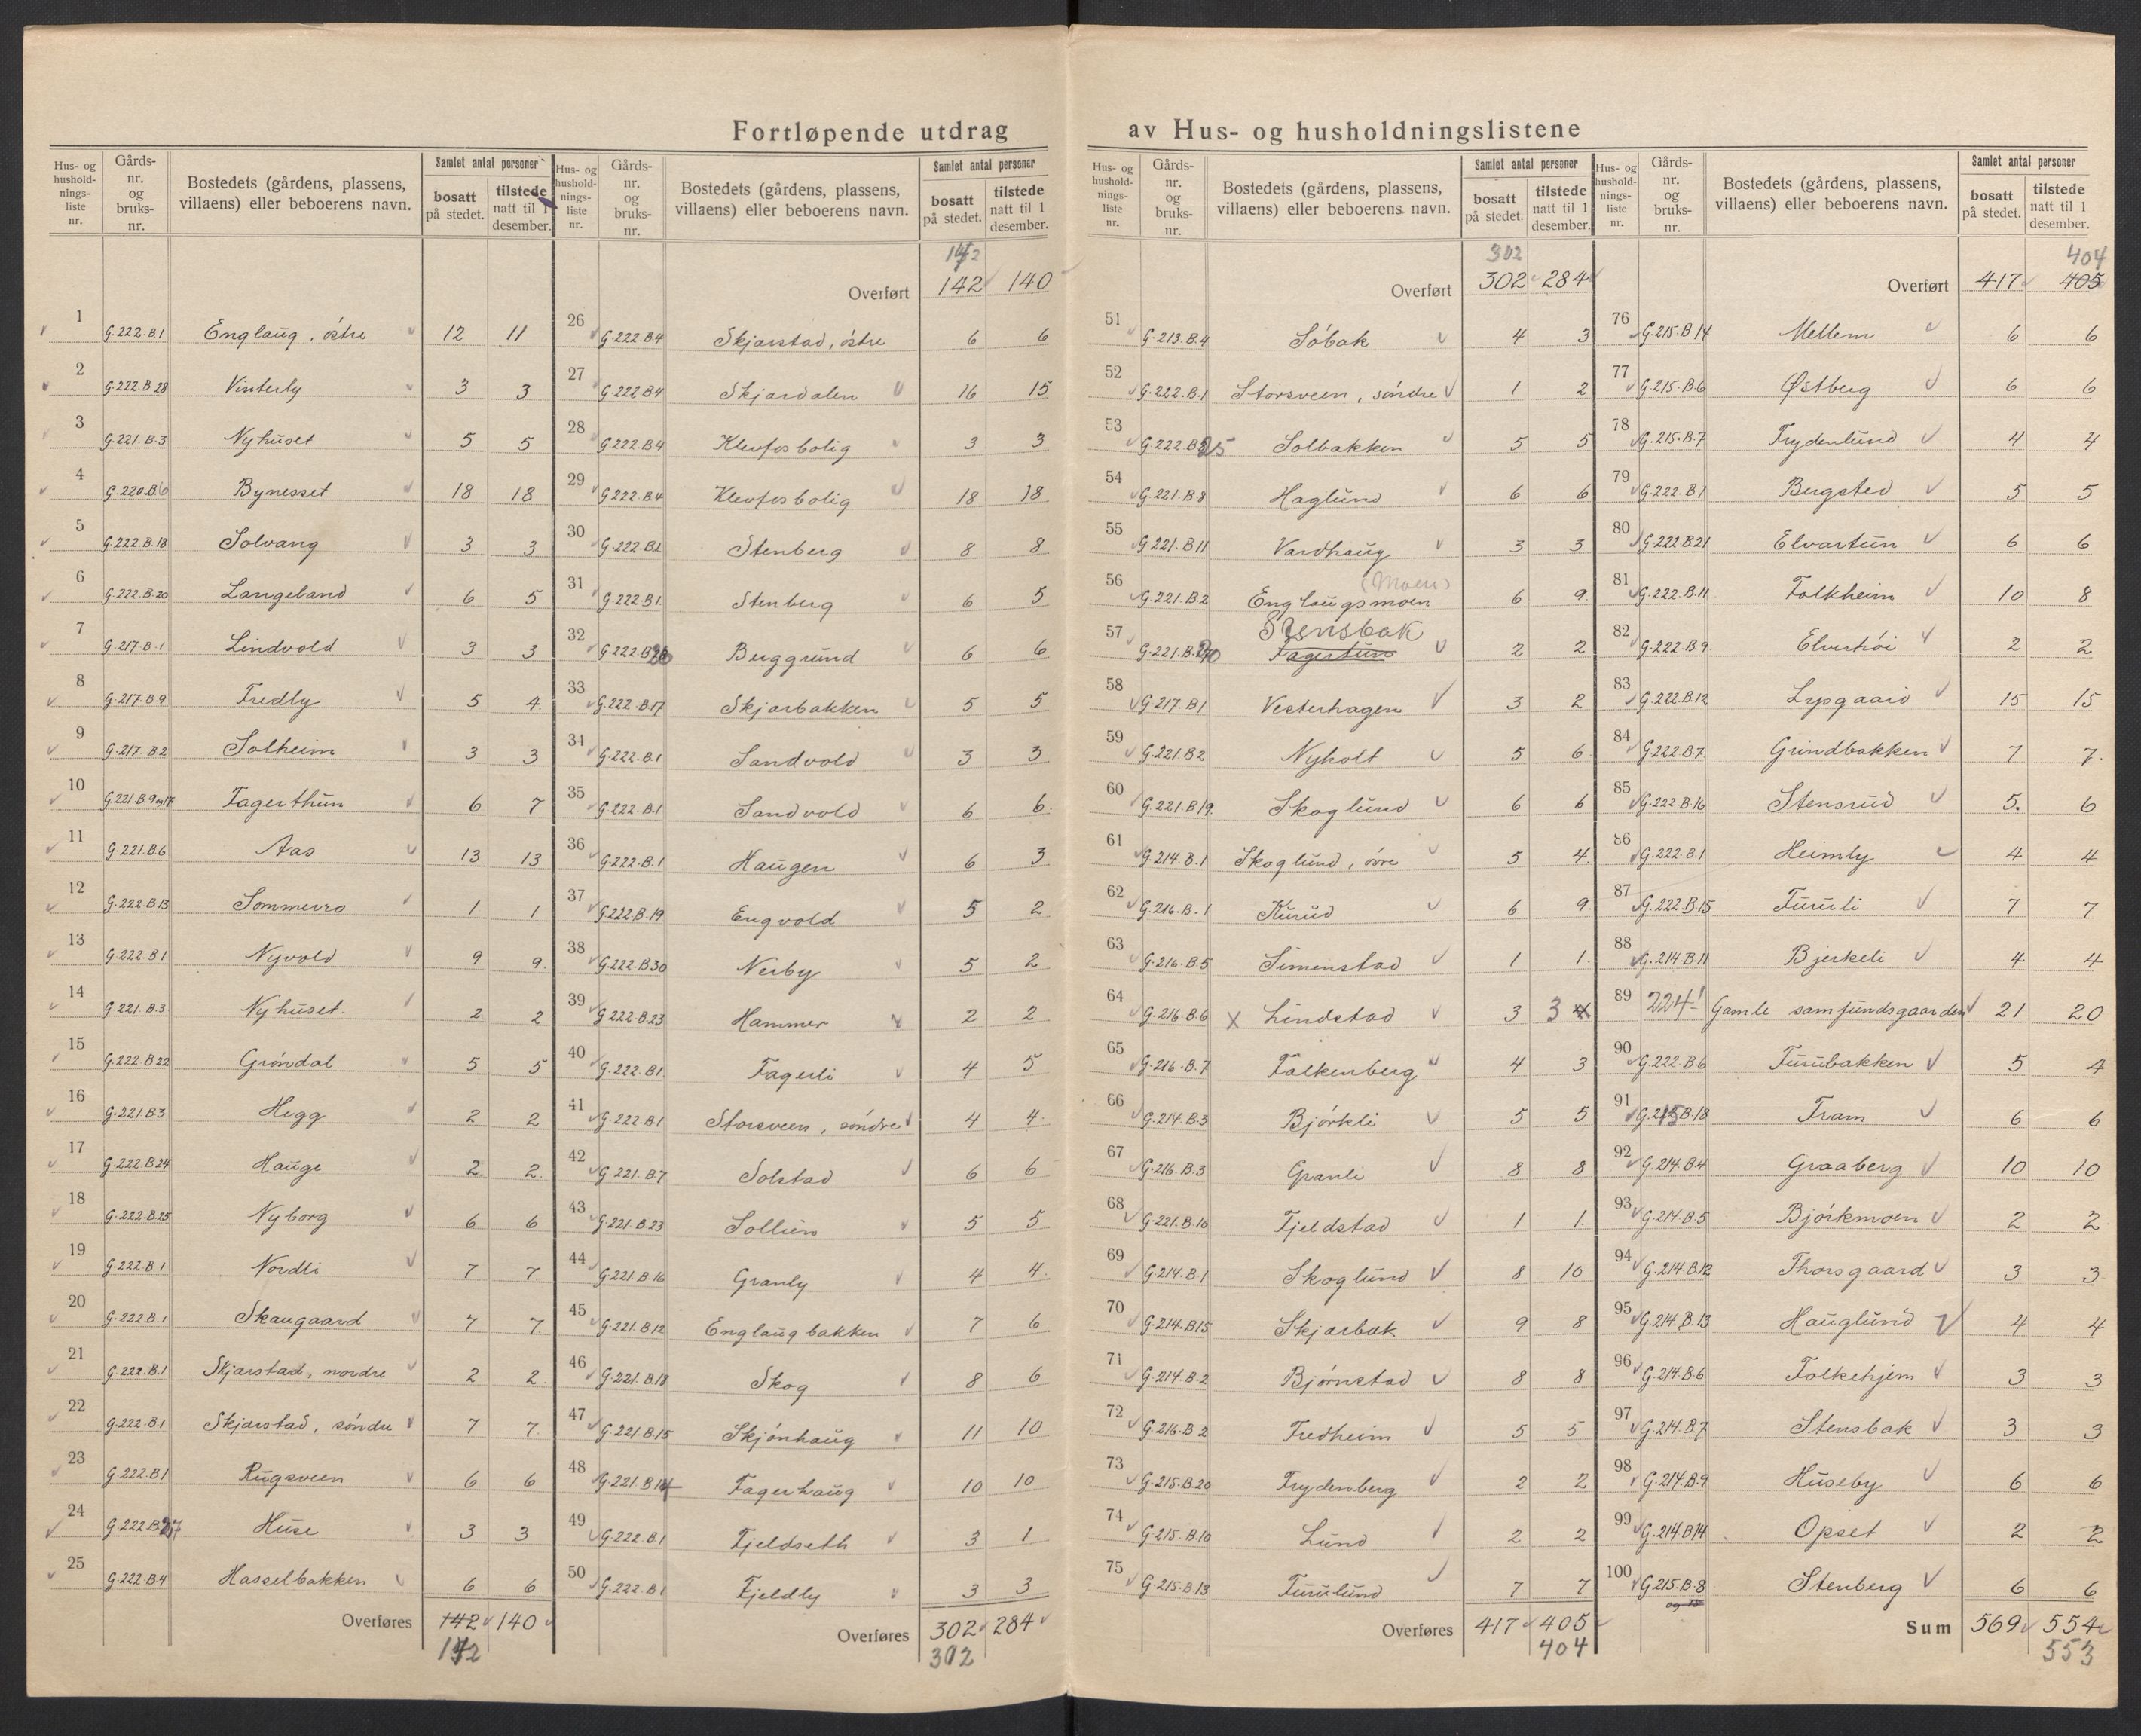 Fortløpende utdrag av Hus- og husholdningslistene
Hus- og hushold- nings- liste nr. | Gårds- nr. og bruks- nr. | Bostedets (gårdens, plassens, villaens) eller beboerens navn. | Samlet antal personer | bosatt på stedet. | tilstede natt til 1 desember.
1 G.222.B.1 Englaug, östre 12 11
2 G.222.B.28 Vinterly 3 3
3 G.221.B.3 Nyhuset 5 5
4 G.220.B.6 Bynesset 18 18
5 G.222.B.18 Solvang 3 3
6 G.222.B.20 Langeland 6 5
7 G.217.B.1 Lindvold 3 3
8 G.217.B.9 Fredly 5 4
9 G.217.B2 Solheim 3 3
10 G.221.B.9og17 Fagerthun 6 7
11 G.221.B.6 Aas 13 13
12 G.222.B13 Sommerro 1 1
13 G.222.B1 Nyvold 9 9
14 G.221.B.3 Nyhuset 2 2
15 G.222.B22 Gröndal 5 5
16 G.221.B3 Hegg 2 2
17 G.222.B24 Hauge 2 2
18 G.222.B25 Nyborg 6 6
19 G.222.B1 Nordli 7 7
20 G.222.B.1 Skaugaard 7 7
21 G.222.B.1 Skjærstad, nordre 2 2
22 G.222.B.1 Skjærstad, söndre 7 7
23 G.222.B1 Rugsveen 6 6
24 G.222.B27 Huse 3 3
25 G.222.B.4 Hasselbakken 6 6
Overføres 142 140
142
Hus- og hushold- nings- liste nr. | Gårds- nr. og bruks- nr. | Bostedets (gårdens, plassens, villaens) eller beboerens navn. | Samlet antal personer | bosatt på stedet. | tilstede natt til 1 desember.
142
Overført 142 140
26 G.222.B4 Skjærstad, östre 6 6
27 G.222.B4 Skjærdalen 16 15
28 G.222.B4 Klevfosbolig 3 3
29 G.222.B4 Klevfosbolig 18 18
30 G.222.B1 Stenberg 8 8
31 G.222.B1 Stenberg 6 5
32 G.222.B26 Berggrund 6 6
33 G.222.B17 Skjærbakken 5 5
31 G.222.B.1 Sandvold 3 3
35 G.222.B.1 Sandvold 6 6
36 G.222.B.1 Haugen 6 3
37 G.222.B.19 Engvold 5 2
38 G.222.B30 Nerby 5 2
39 G.222.B.23 Hammer 2 2
40 G.222.B1 Fagerli 4 5
41 G.222.B1 Storsveen, söndre 4 4
42 G.221.B7 Solstad 6 6
43 G.221.B.23 Sollien 5 5
44 G.221.B.16 Granly 4 4
45 G.221.B12 Englaugbakken 7 6
46 G.221.B.18 Skog 8 6
47 G.221.B.15 Skjönhaug 11 10
48 G.221.B14 Fagerhaug 10 10
49 G.222.B1 Fjeldseth 3 1
50 G.222.B1 Fjeldly 3 3
Overføres 302 284
302
Hus- og hushold- nings- liste nr. | Gårds- nr. og bruks- nr. | Bostedets (gårdens, plassens, villaens) eller beboerens navn. | Samlet antal personer | bosatt på stedet. | tilstede natt til 1 desember.
302
Overført 302 284
51 G.213.B.4 Söbak 4 3
52 G.222.B.1 Storsveen, söndre 1 2
53 G.222.B25 Solbakken 5 5
54 G.221.B8 Haglund 6 6
55 G.221.B11 Vardhaug 3 3
(Moen)
56 G.221.B.2 Englaugsmoen 6 9
Stensbak
57 G.221.B.20 Fagertun 2 2
58 G.217.B1 Vesterhagen 3 2
59 G.221.B2 Nyholt 5 6
60 G.221.B19 Skoglund 6 6
61 G.214.B.1 Skoglund, övre 5 4
62 G.216.B.1 Kurud 6 9
63 G.216.B5 Simenstad 1 1
64 G.216.B.6 x Lindstad 3 3 4
65 G.216.B.7 Falkenberg 4 3
66 G.214.B.3 Björkli 5 5
67 G.216.B.3 Granli 8 8
68 G.221.B.10 Fjeldstad 1 1
69 G.214.B.1 Skoglund 8 10
70 G.214.B15 Skjærbæk 9 8
71 G.214.B.2 Bjørnstad 8 8
72 G.216.B2 Fredheim 5 5
73 G.215.B.20 Frydenberg 2 2
74 G.215.B.10 Lund 2 2
75 G.215.B13 Furulund 7 7
Overføres 417 405
404
Hus- og hushold- nings- liste nr. | Gårds- nr. og bruks- nr. | Bostedets (gårdens, plassens, villaens) eller beboerens navn. | Samlet antal personer | bosatt på stedet. | tilstede natt til 1 desember.
404
Overført 417 405
76 G.215.B14 Mellem 6 6
77 G.215.B.6 Østberg 6 6
78 G.215.B.7 Frydenlund 4 4
79 G.222.B1 Bergsted 5 5
80 G.222.B21 Elvartun 6 6
81 G.222.B.11 Folkheim 10 8
82 G.222.B.9 Elverhöi 2 2
83 G.222.B.12 Lysgaard 15 15
84 G.222.B7 Grindbakken 7 7
85 G.222.B.16 Stensrud 5 6
86 G.222.B.1 Heimly 4 4
87 G.222.B.15 Furuli 7 7
88 G.214.B.11 Bjerkeli 4 4
89 224-1 Gamle samfundsgaarden 21 20
90 G.222.B.6 Furubakken 5 4
91 G.215.B.18 Fram 6 6
92 G.214.B.4 Graaberg 10 10
93 G.214.B.5 Björkmoen 2 2
94 G.214.B12 Thorsgaard 3 3
95 G.214.B.13 Hauglund 4 4
96 G.214.B.6 Folkehjem 3 3
97 G.214.B.7 Stensbak 3 3
98 G.214.B.9 Huseby 6 6
99 G.214.B14 Opset 2 2
100 G.215.B.8 Stenberg 6 6
Sum 569 554
553